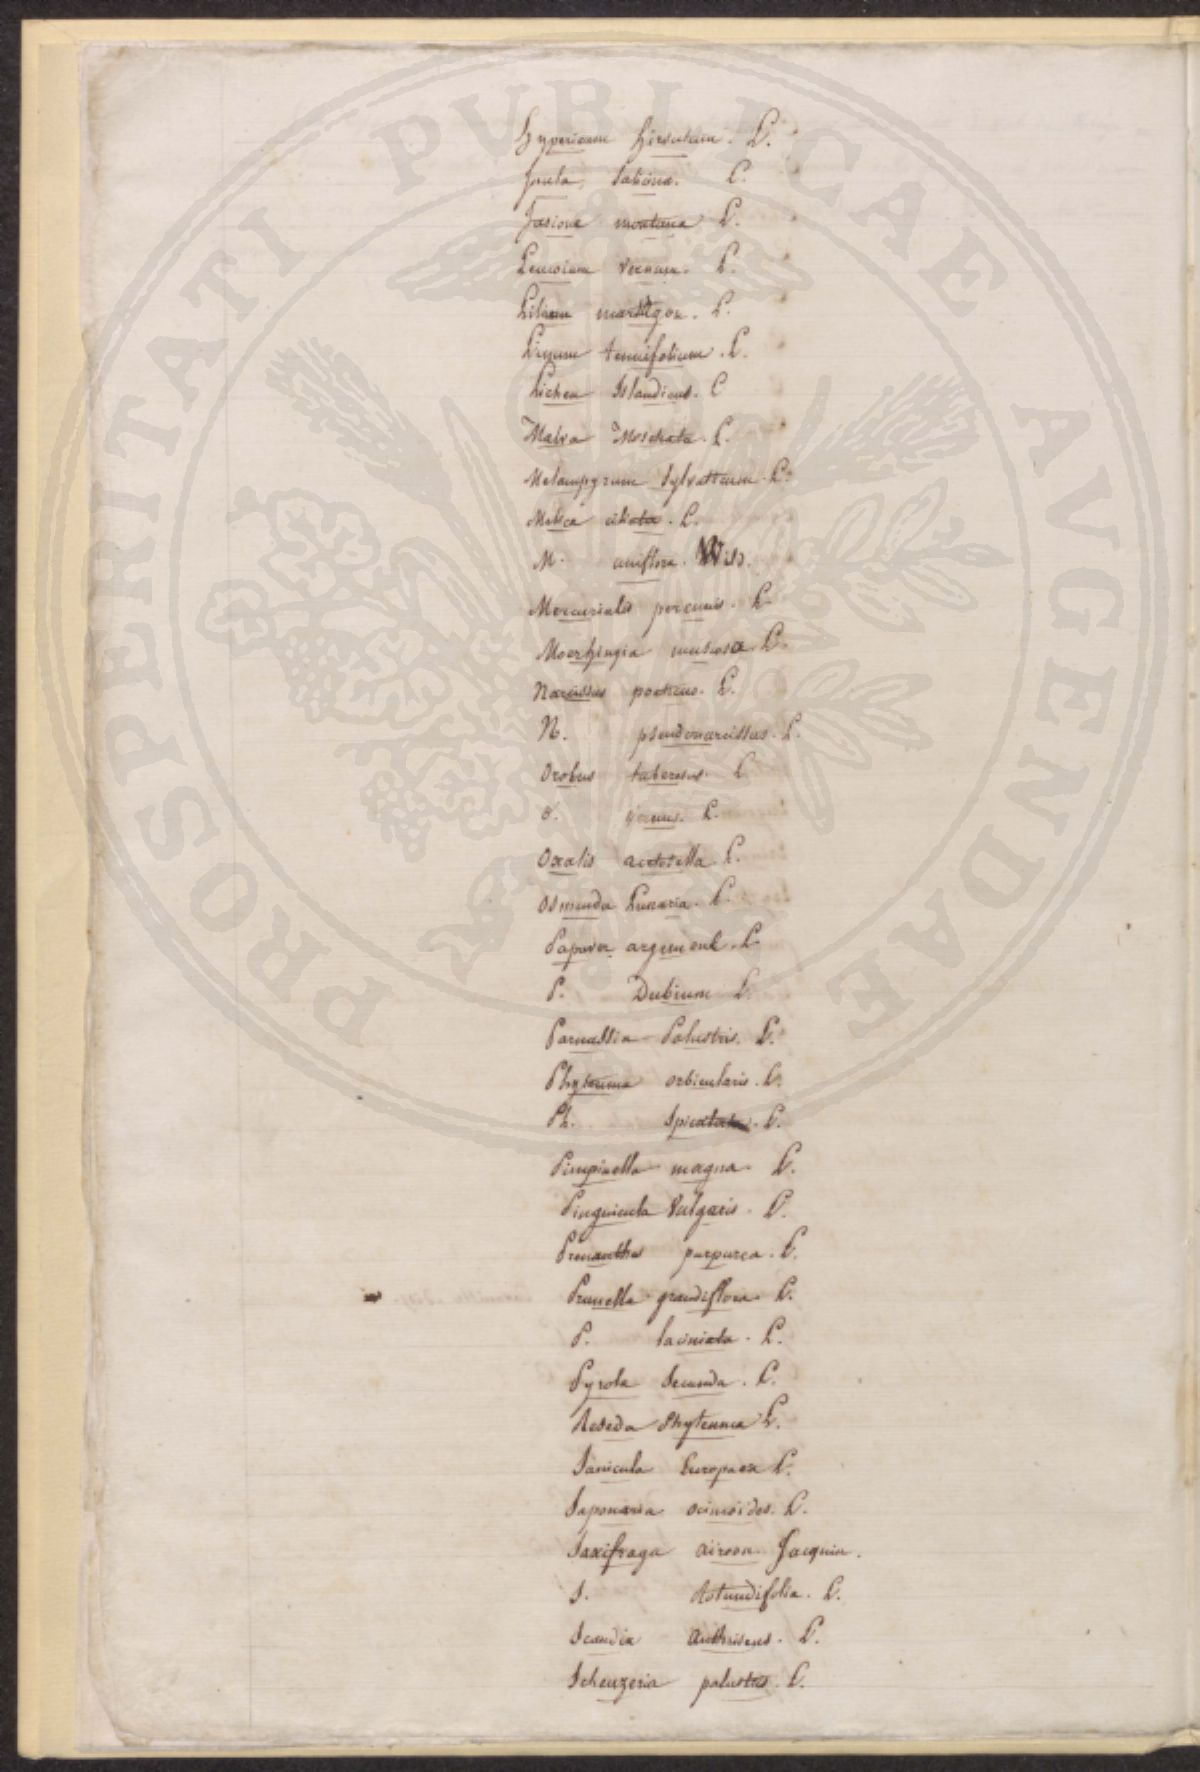 Hypericum hirsutum. L.
Inula salicina. L.
Jasione montana L.
Leucoium vernum. L.
Lilium martagon. L.
Linum tenuifolium. L.
Lichen Islandicus. L
Malva Moschata. L.
Melampyrum Sylvaticum. L.
Melica ciliata. L.
M. uniflora. Wild.
Mercurialis perennis. L
Moerhingia muscosa L.
Narcissus poeticus. L.
N. pseudonarcissus. L.
Orobus tuberosus. L
O. vernus. L.
Oxalis acetosella. L.
Osmunda Lunaria. L.
Papaver argemone. L
P. Dubium L.
Parnassia Palustris. L.
Phyteuma orbicularis. L.
Ph. Spicata. L.
Pimpinella magna. L.
Pinguicula Vulgaris. L.
Prenanthes purpurea. L.
Prunella grandiflora. L.
P. laciniata. L.
Pyrola Secunda. L.
Reseda Phyteuma L.
Sanicula Europaea L.
Saponaria ocimoides. L.
Saxifraga aizoon. Jacquin.
S. Rotundifolia. L.
Scandix Anthriscus. L.
Scheuzeria palustris. L.
PROSPERITATI PUBLICAE AVGENDAE